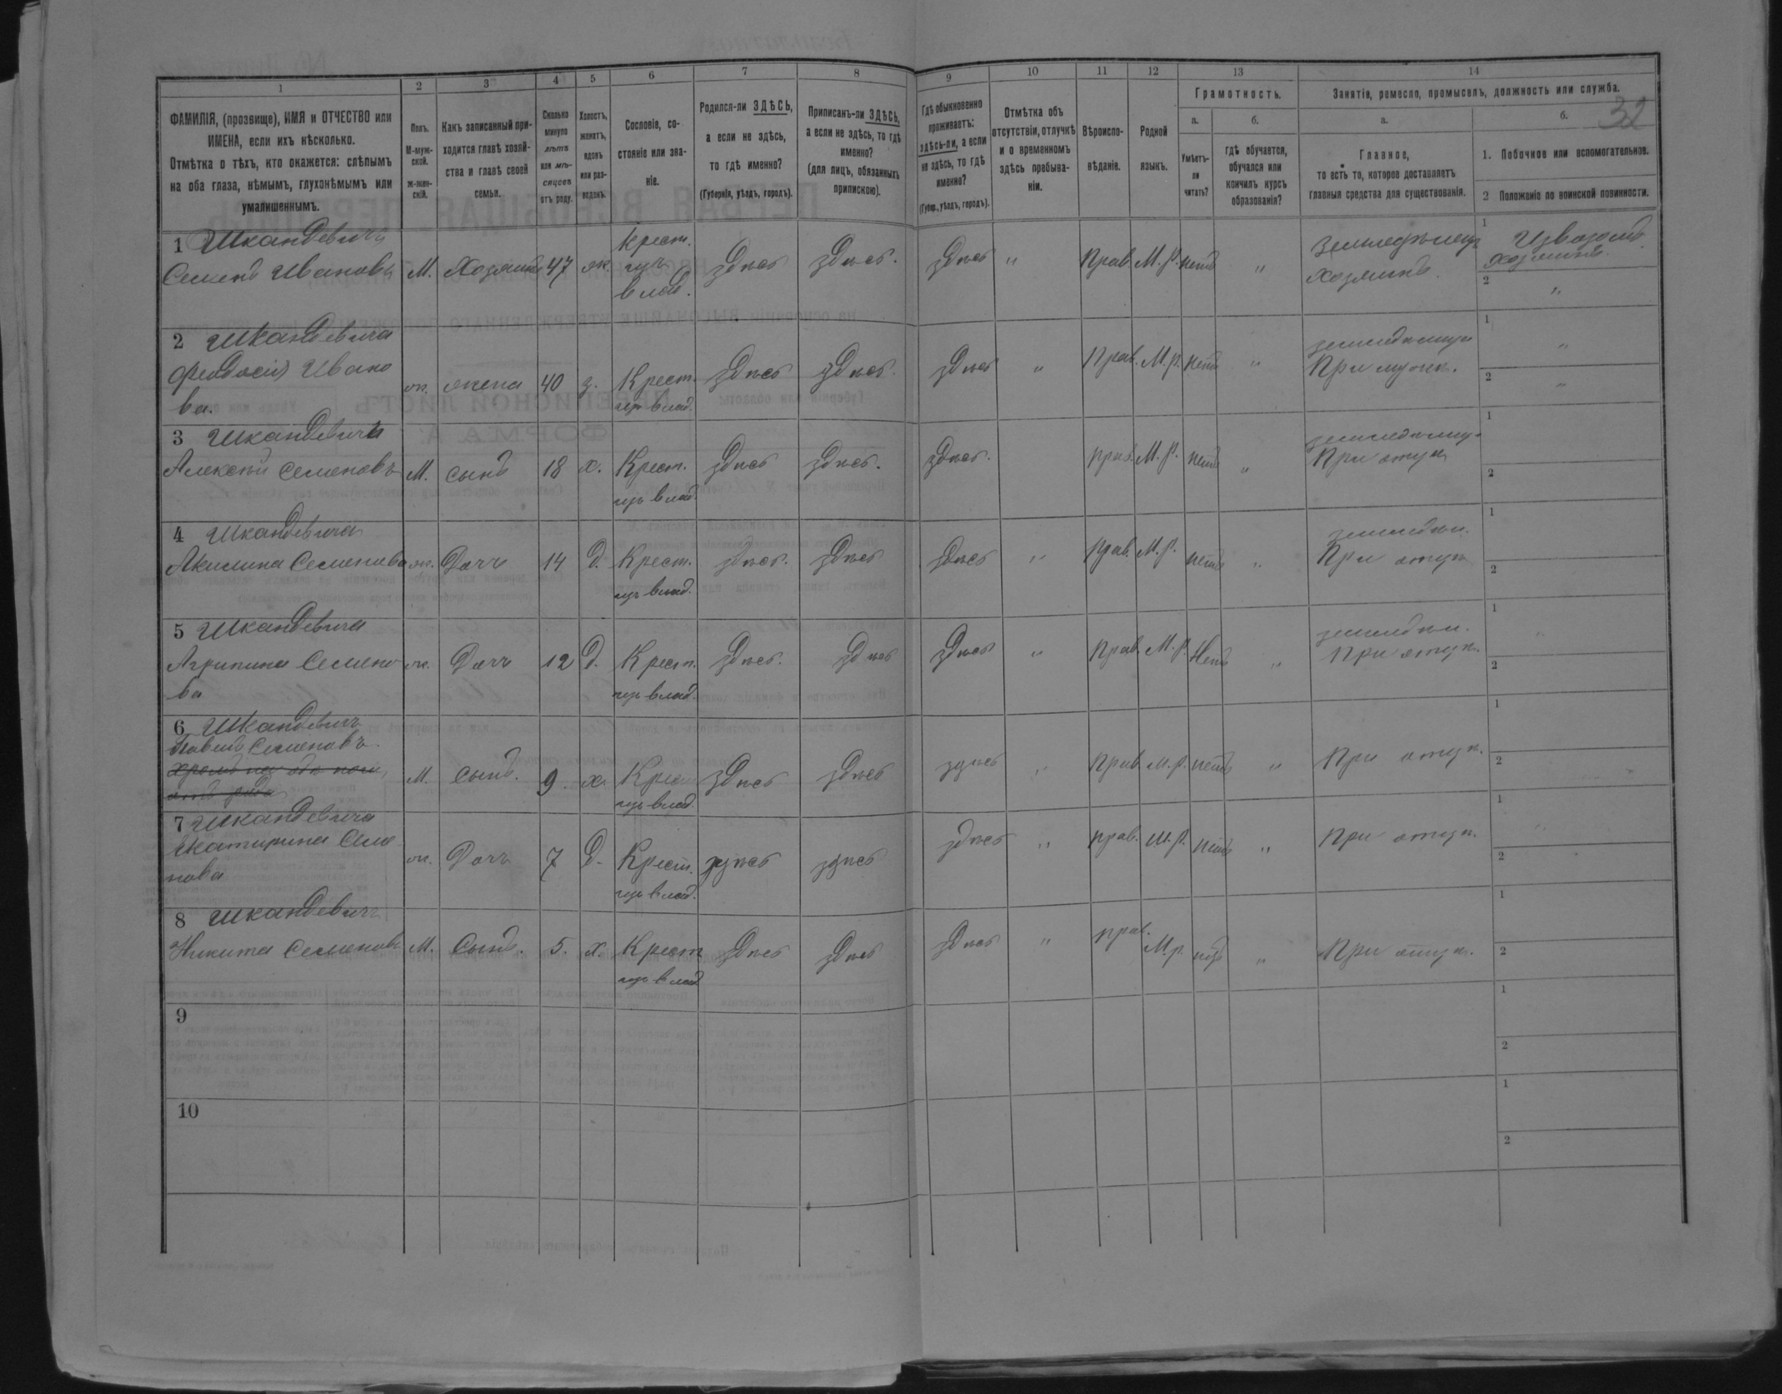 1 2 3 4 5 6 7 8 9 10 11 12 13 14
32
ФАМИЛІЯ, (прозвище), ИМЯ и ОТЧЕСТВО или
ИМЕНА, если ихъ нѣсколько.
Отмѣтка о тѣхъ, кто окажется: слѣпымъ
на оба глаза, нѣмымъ, глухонѣмымъ или
умалишеннымъ.
Полъ.
М-муж-
ской.
Ж-жен-
скій.
Какъ записанный при-
ходится главѣ хозяй-
ства и главѣ своей
семьи.
Сколько
минуло
лѣтъ
или мѣ-
сяцевъ
отъ роду.
Холостъ,
женатъ,
вдовъ
или раз-
веденъ.
Сословіе, со-
стояніе или зва-
ніе.
Родился-ли ЗДѢСЬ,
а если не здѣсь,
то гдѣ именно?
(Губернія, уѣздъ, городъ).
Приписанъ-ли ЗДѢСЬ,
а если не здѣсь, то гдѣ
именно?
(для лицъ, обязанныхъ
припискою).
Гдѣ обыкновенно
проживаетъ:
здѣсь-ли, а если
не здѣсь, то гдѣ
именно?
(Губер., уѣздъ, городъ).
Отмѣтка объ
отсутствіи, отлучкѣ
и о временномъ
здѣсь пребыва-
ніи.
Вѣроиспо-
вѣданіе.
Родной
языкъ.
Грамотность.
а.
Умѣетъ-
ли
читать?
б.
гдѣ обучается,
обучался или
кончилъ курсъ
образованія?
Занятіе, ремесло, промыселъ, должность или служба.
а.
Главное,
то есть то, которое доставляетъ
главныя средства для существованія.
б.
1. Побочное или вспомогательное.
2 Положеніе по воинской повинности.
1 Шкандевичъ
Семенъ Ивановъ М. Хозяинъ 47 ж. Крест. здѣсь здѣсь. здѣсь " Прав. М. р. нѣтъ " хозяинъ.
влад.
1 Извозомъ
хозяинъ.
2 "
2 Шкандевича
Феодосія Ивано
ва. ж. жена 40 з. Крест. здѣсь здѣсь. здѣсь " Прав. М. р. нѣтъ " При мужѣ.
влад.
1 "
2 "
3 Шкандевичъ
Алексѣй Семеновъ М. сынъ 18 х. Крест. здѣсь здѣсь. здѣсь. прав. М. р. нѣтъ " При отцѣ
влад.
1
2
4 Шкандевича
Акилина Семенова ж. Дочь 14 д. Крест. здѣсь. здѣсь здѣсь " Прав. М. р. нѣтъ " При отцѣ
влад.
1
2
5 Шкандевича
Агрипина Семено
ва ж. Дочь 12 д. Крест. здѣсь. здѣсь здѣсь " Прав. М. р. Нѣтъ " При отцѣ.
влад.
1 "
2
6 Шкандевичъ
Павелъ Семеновъ.
М. Сынъ. 9. х. Крес здѣсь здѣсь здѣсь " Прав. М. р. нѣтъ " При отцѣ.
влад.
1
2
7 Шкандевича
Екатирина Семе
нова ж. Дочь 7 д. Крест. здѣсь здѣсь здѣсь " прав. М. р. нѣтъ " При отцѣ.
влад.
1 "
2
8 Шкандевичъ
Никита Семеновъ М. Сынъ. 5. х. Крест здѣсь здѣсь здѣсь " прав. М. р. нѣтъ " При отцѣ.
влад.
1
2
9
1
2
10
1
2